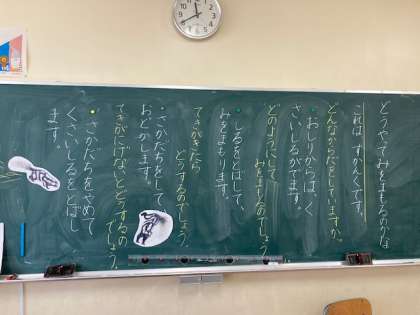 どうやってみをまもるのかな
これは、すかんくです。
どんなからだをしていますか。
おしりからはく
さいしるがでます。
どのようにして
みをまもるのでしょう。
しるをとばして、
みをまもります。
てきがきたら
どうするのでしょう。
さかだちをして、
おどかします。
てきがにげないとどうするの
でしょう。
さかだちをやめて
くさいしるをとばし
ます。